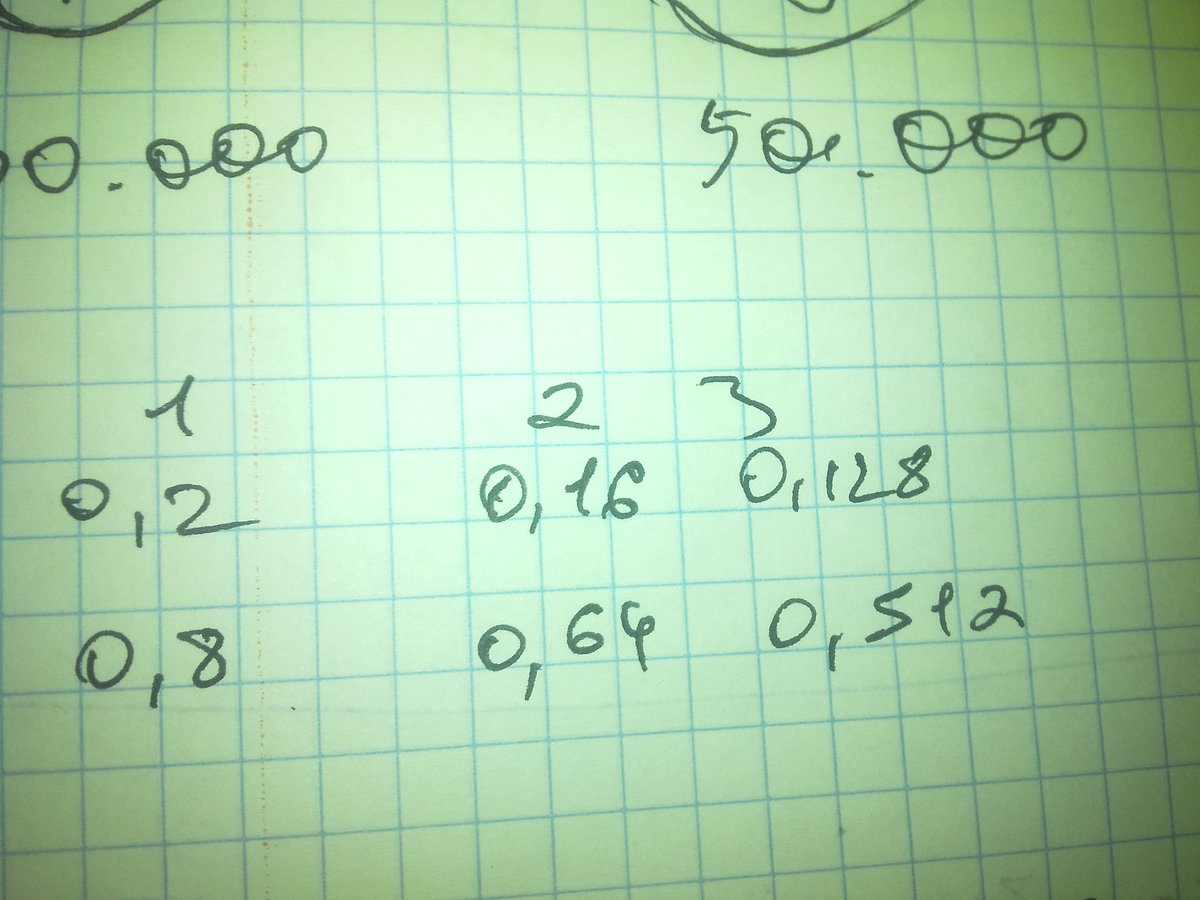 00.000 50.000
1 2 3
0,2 0,16 0,128
0,8 0,64 0,512